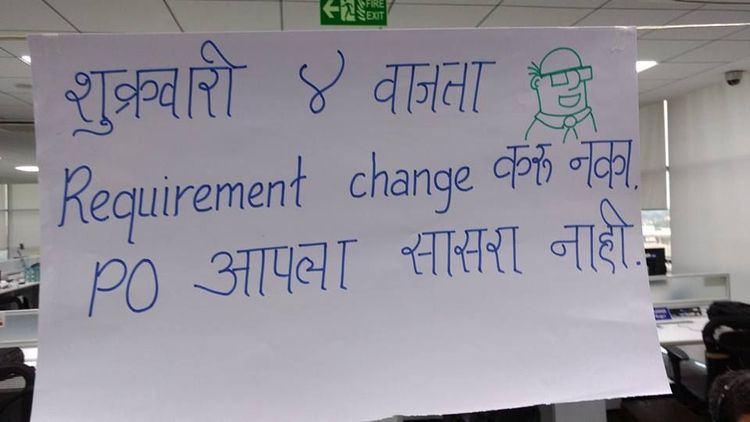 FIRE
EXIT
शुक्रवारी ४ वाजता
Requirement change करू नका.
PO आपला सासरा नाही.